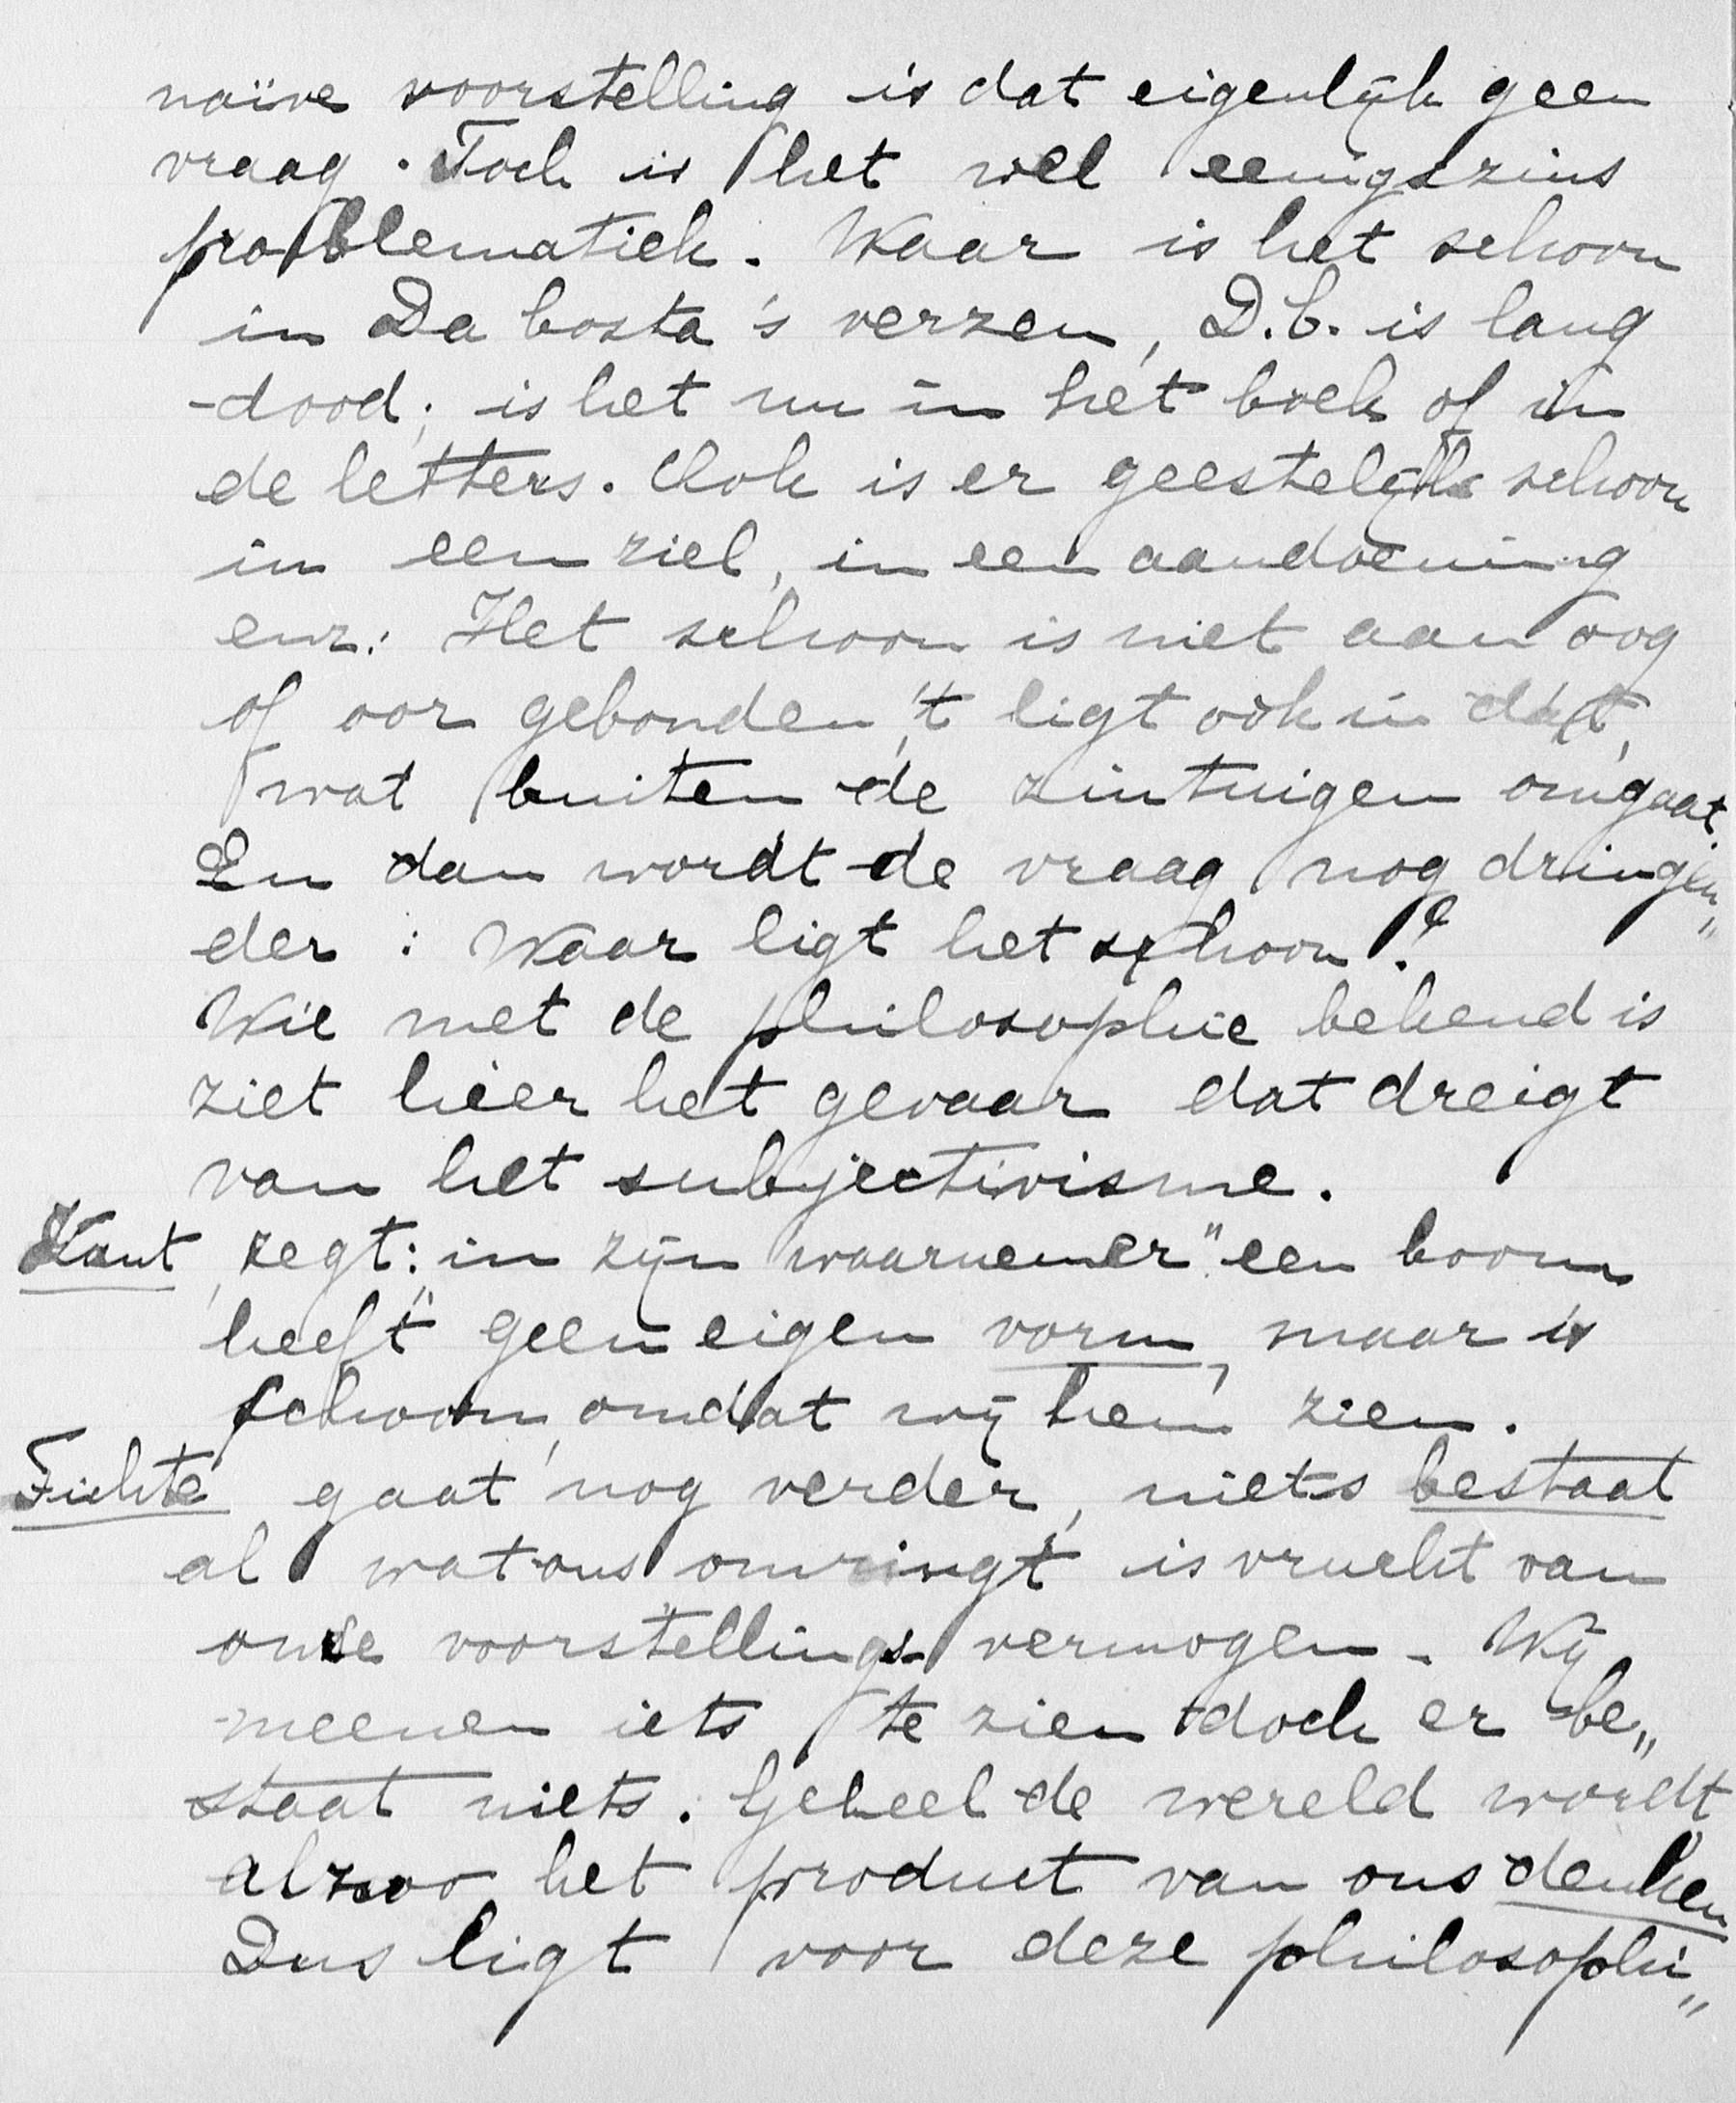 naïve voorstelling is dat eigenlijk geen
vraag. Toch is het wel eenigszins
problematiek. Waar is het schoon
in Da Costa's verzen, D.C. is lang
dood; is het nu in het boek of in
de letters. Ook is er geestelijk schoon
in een ziel, in een aandoening
enz: Het schoon is niet aan oog
of oor gebonden, 't ligt ook in dat,
wat buiten de zintuigen omgaat.
En dan wordt de vraag nog dringen„
der: Waar ligt het schoon?
Wie met de philosophie bekend is
ziet hier het gevaar dat dreigt
van het subjectivisme.
Kant zegt: in zijn „waarnemer" een boom
heeft geen eigen vorm, maar is
schoon, omdat wij hem zien.
Fichte gaat nog verder, niets bestaat
al wat ons omringt is vrucht van
onze voorstellings-vermogen. Wij
meenen iets te zien doch er be„
staat niets. Geheel de wereld wordt
alzoo het product van ons denken
Dus ligt voor deze philosophi„